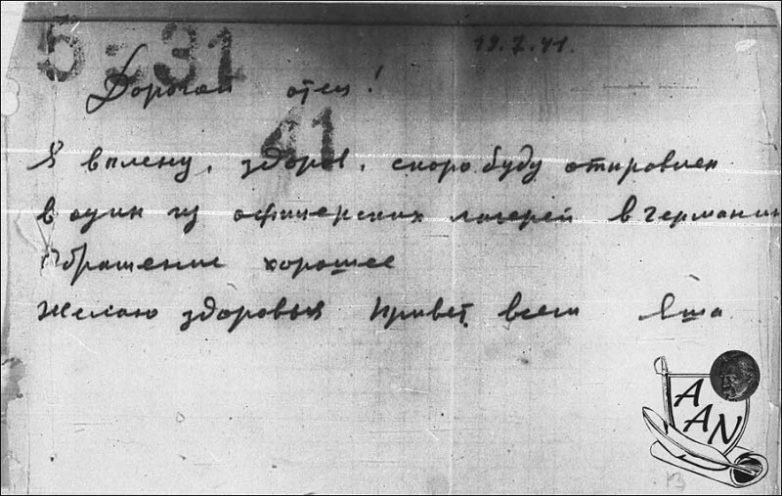 5 = 31
19.7.41.
Дорогой отец!
41
Я в плену, здоров, скоро буду отправлен
в один из офицерских лагерей в Германии
Обращение хорошее
Желаю здоровья Привет всем Яша
AAN